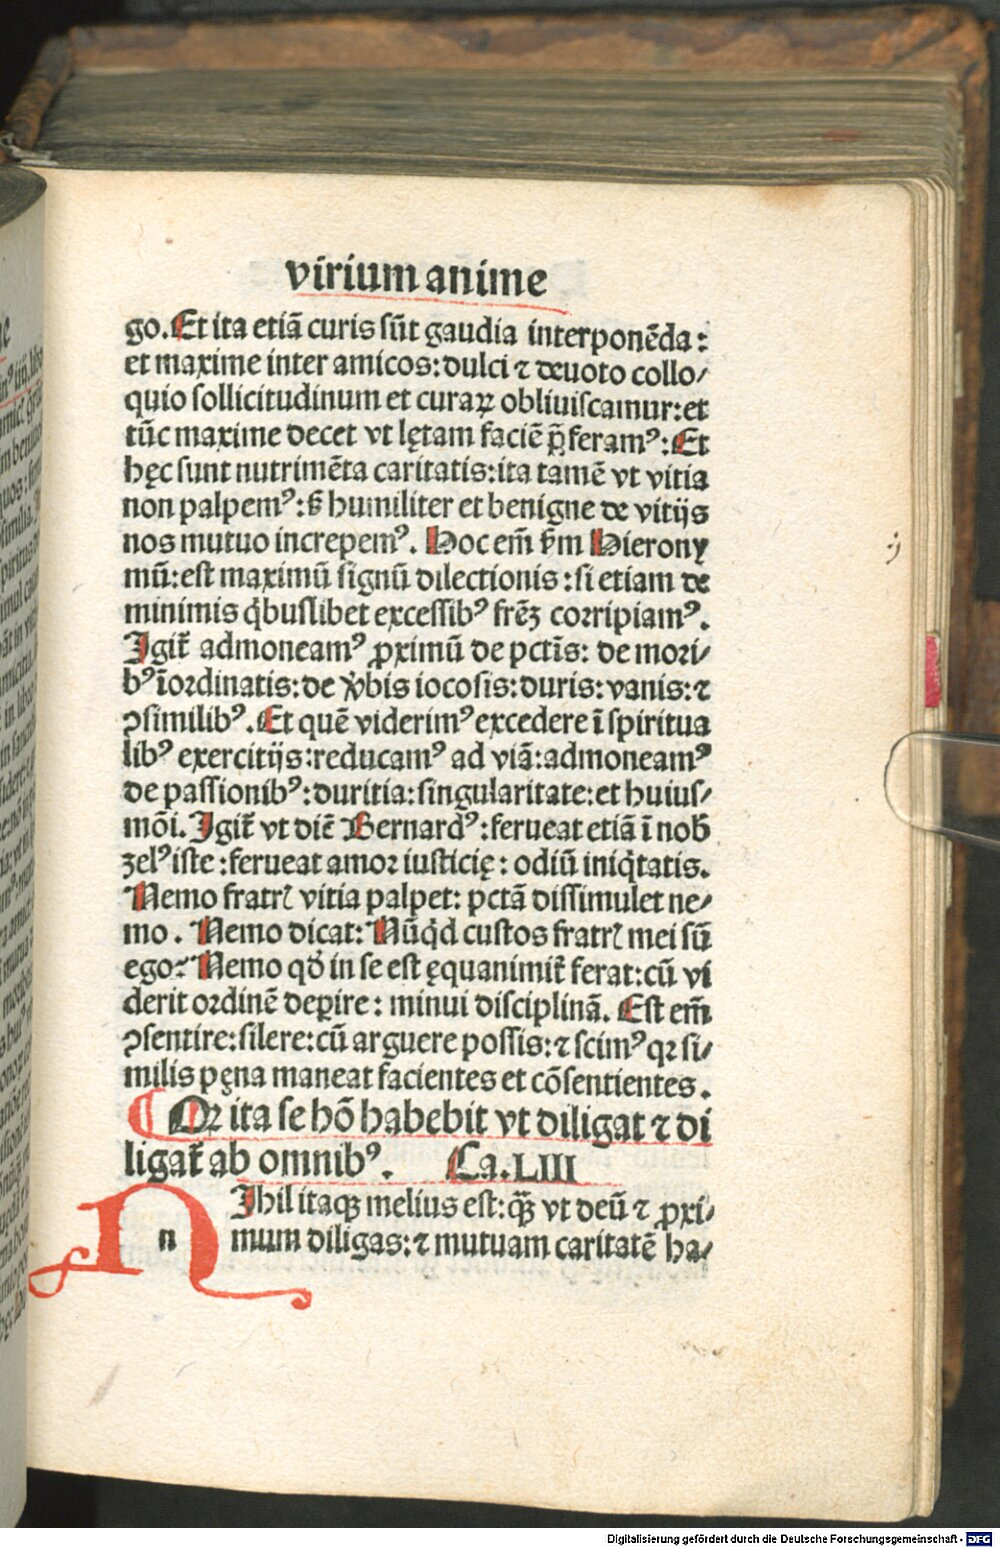 virium anime
go. Et ita etiā curis sūt gaudia interponēda:
et maxime inter amicos: dulci ⁊ deuoto collo/
quio sollicitudinum et curaꝝ obliuiscamur: et
tūc maxime decet vt lętam faciē p̄feramꝰ: Et
hęc sunt nutrimēta caritatis: ita tamē vt vitia
non palpemꝰ: sꝫ humiliter et benigne de vitijs
nos mutuo increpemꝰ. Hoc em̄ ẜm Hierony
mū: est maximū signū dilectionis: si etiam de
minimis qͥbuslibet excessibꝰ frēꝫ corripiamꝰ.
Igit̃ admoneamꝰ ꝓximū de pctīs: de mori/
bꝰ īordinatis: de v̾bis iocosis: duris: vanis: ⁊
ꝯsimilibꝰ. Et quē viderimꝰ excedere ī spiritua
libꝰ exercitijs: reducamꝰ ad viā: admoneamꝰ
de passionibꝰ: duritia: singularitate: et huius/
mōi. Igit̃ vt dic̄ Bernardꝰ: ferueat etiā ī nob̄
zelꝰ iste: ferueat amor iusticię: odiū iniqͥtatis.
Nemo fratrꝭ vitia palpet: pctā dissimulet ne/
mo. Nemo dicat: Nūqͥd custos fratrꝭ mei sū
ego? Nemo qd̄ in se est ęquanimit̃ ferat: cū vi
derit ordinē deꝑire: minui disciplinā. Est em̄
ꝯsentire: silere: cū arguere possis: ⁊ scimꝰ qꝛ si/
milis pęna maneat facientes et cōsentientes.
¶ Qꝛ ita se hō habebit vt diligat ⁊ di
ligat̃ ab omnibꝰ. Ca. LIII
NIhil itaqꝫ melius est: qͣꝫ vt deū ⁊ ꝓxi/
n
mum diligas: ⁊ mutuam caritatē ha/
Digitalisierung gefördert durch die Deutsche Forschungsgemeinschaft - DFG